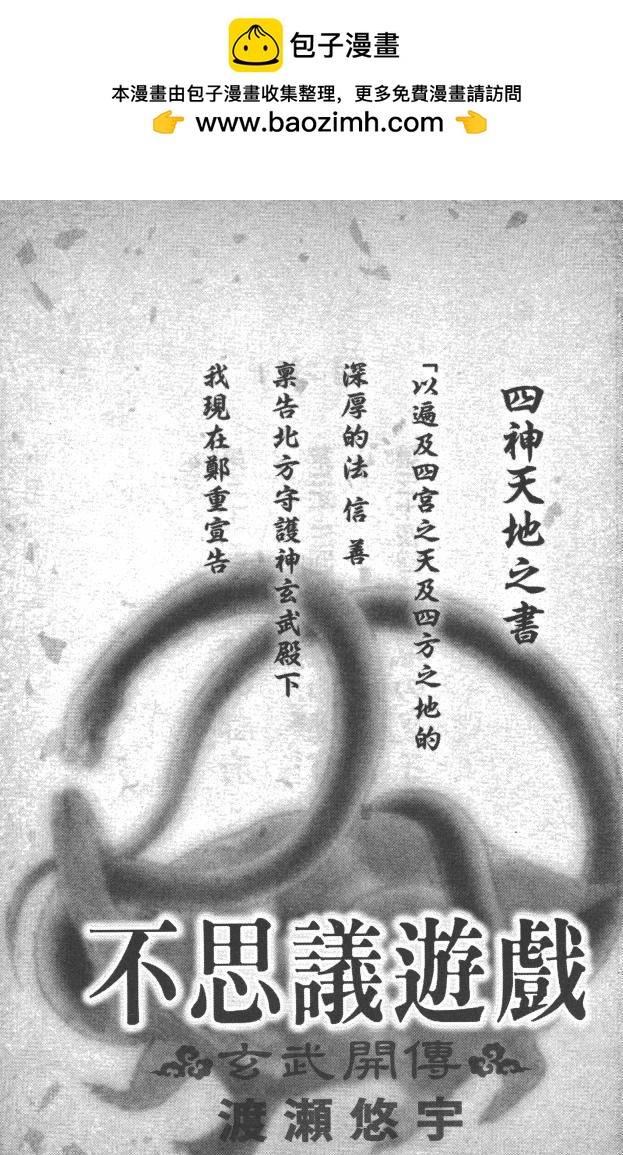 包子漫畫
本漫畫由包子漫畫收集整理，更多免費漫畫請訪問
👉 www.baozimh.com 👈
四神天地之書
「以遍及四宮之天及四方之地的
深厚的法 信 善
稟告北方守護神玄武殿下
我現在鄭重宣告
不思議遊戲
玄武開傳
渡瀨悠宇